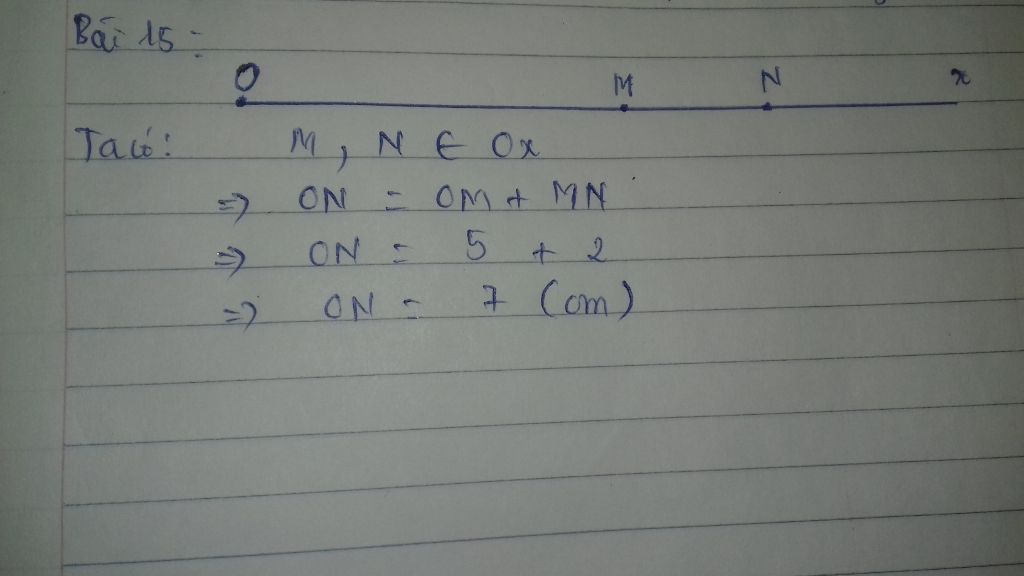 Bài 15:
O M N x
Ta có: M, N ∈ Ox
=> ON = OM + MN
=> ON = 5 + 2
=> ON = 7 (cm)